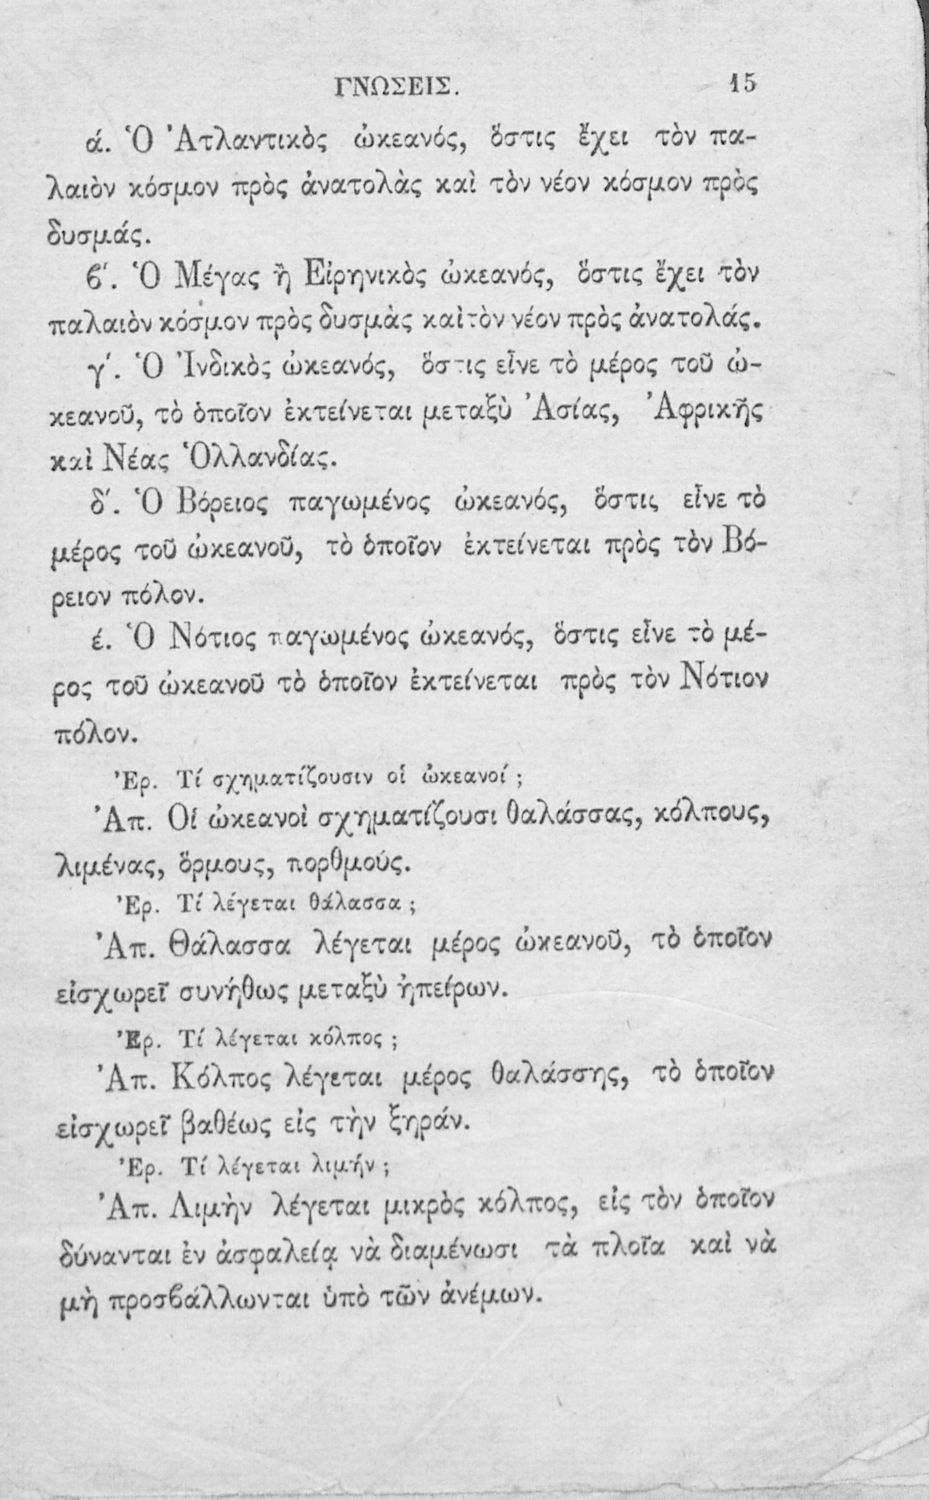 ΓΝΩΣΕΙΣ. 15
ά. Ὁ Ἀτλαντικὸς ὠκεανός, ὅστις ἔχει τὸν πα-
λαιὸν κόσμον πρὸς ἀνατολὰς καὶ τὸν νέον κόσμον πρὸς
δυσμάς.
ϐ΄. Ὁ Μέγας ἢ Εἰρηνικὸς ὠκεανός, ὅστις ἔχει τὸν
παλαιὸν κόσμον πρὸς δυσμὰς καὶ τὸν νέον πρὸς ἀνατολάς.
γ΄. Ὁ Ἰνδικὸς ὠκεανός, ὅστις εἶνε τὸ μέρος τοῦ ὠ-
κεανοῦ, τὸ ὁποῖον ἐκτείνεται μεταξὺ Ἀσίας, Ἀφρικῆς
καὶ Νέας Ὁλλανδίας.
δ΄. Ὁ Βόρειος παγωμένος ὠκεανός, ὅστις εἶνε τὸ
μέρος τοῦ ὠκεανοῦ, τὸ ὁποῖον ἐκτείνεται πρὸς τὸν Βό-
ρειον πόλον.
έ. Ὁ Νότιος παγωμένος ὠκεανός, ὅστις εἶνε τὸ μέ-
ρος τοῦ ὠκεανοῦ τὸ ὁποῖον ἐκτείνεται πρὸς τὸν Νότιον
πόλον.
Ἐρ. Τί σχηματίζουσιν οἱ ὠκεανοί ;
Ἀπ. Οἱ ὠκεανοὶ σχηματίζουσι θαλάσσας, κόλπους,
λιμένας, ὅρμους, πορθμούς.
Ἐρ. Τί λέγεται θάλασσα ;
Ἀπ. Θάλασσα λέγεται μέρος ὠκεανοῦ, τὸ ὁποῖον
εἰσχωρεῖ συνήθως μεταξὺ ἠπείρων.
Ἐρ. Τί λέγεται κόλπος ;
Ἀπ. Κόλπος λέγεται μέρος θαλάσσης, τὸ ὁποῖον
εἰσχωρεῖ βαθέως εἰς τὴν ξηράν.
Ἐρ. Τί λέγεται λιμήν ;
Ἀπ. Λιμὴν λέγεται μικρὸς κόλπος, εἰς τὸν ὁποῖον
δύνανται ἐν ἀσφαλείᾳ νὰ διαμένωσι τὰ πλοῖα καὶ νὰ
μὴ προσϐάλλωνται ὑπὸ τῶν ἀνέμων.